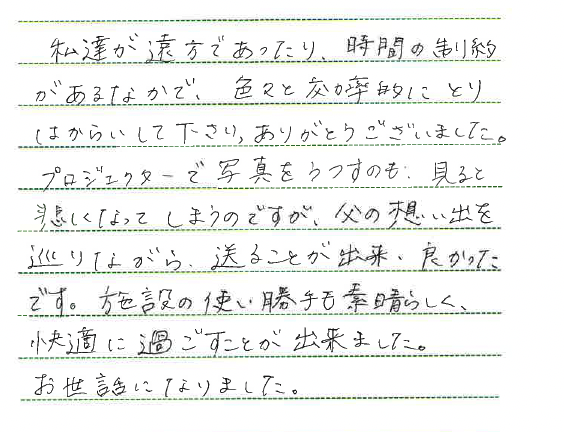 私達が遠方であったり、時間の制約
があるなかで、色々と効率的にとり
はからいして下さり,ありがとうございました。
プロジェクターで写真をうつすのも、見ると
悲しくなってしまうのですが、父の想い出を
巡りながら、送ることが出来、良かった
です。施設の使い勝手も素晴らしく、
快適に過ごすことが出来ました。
お世話になりました。